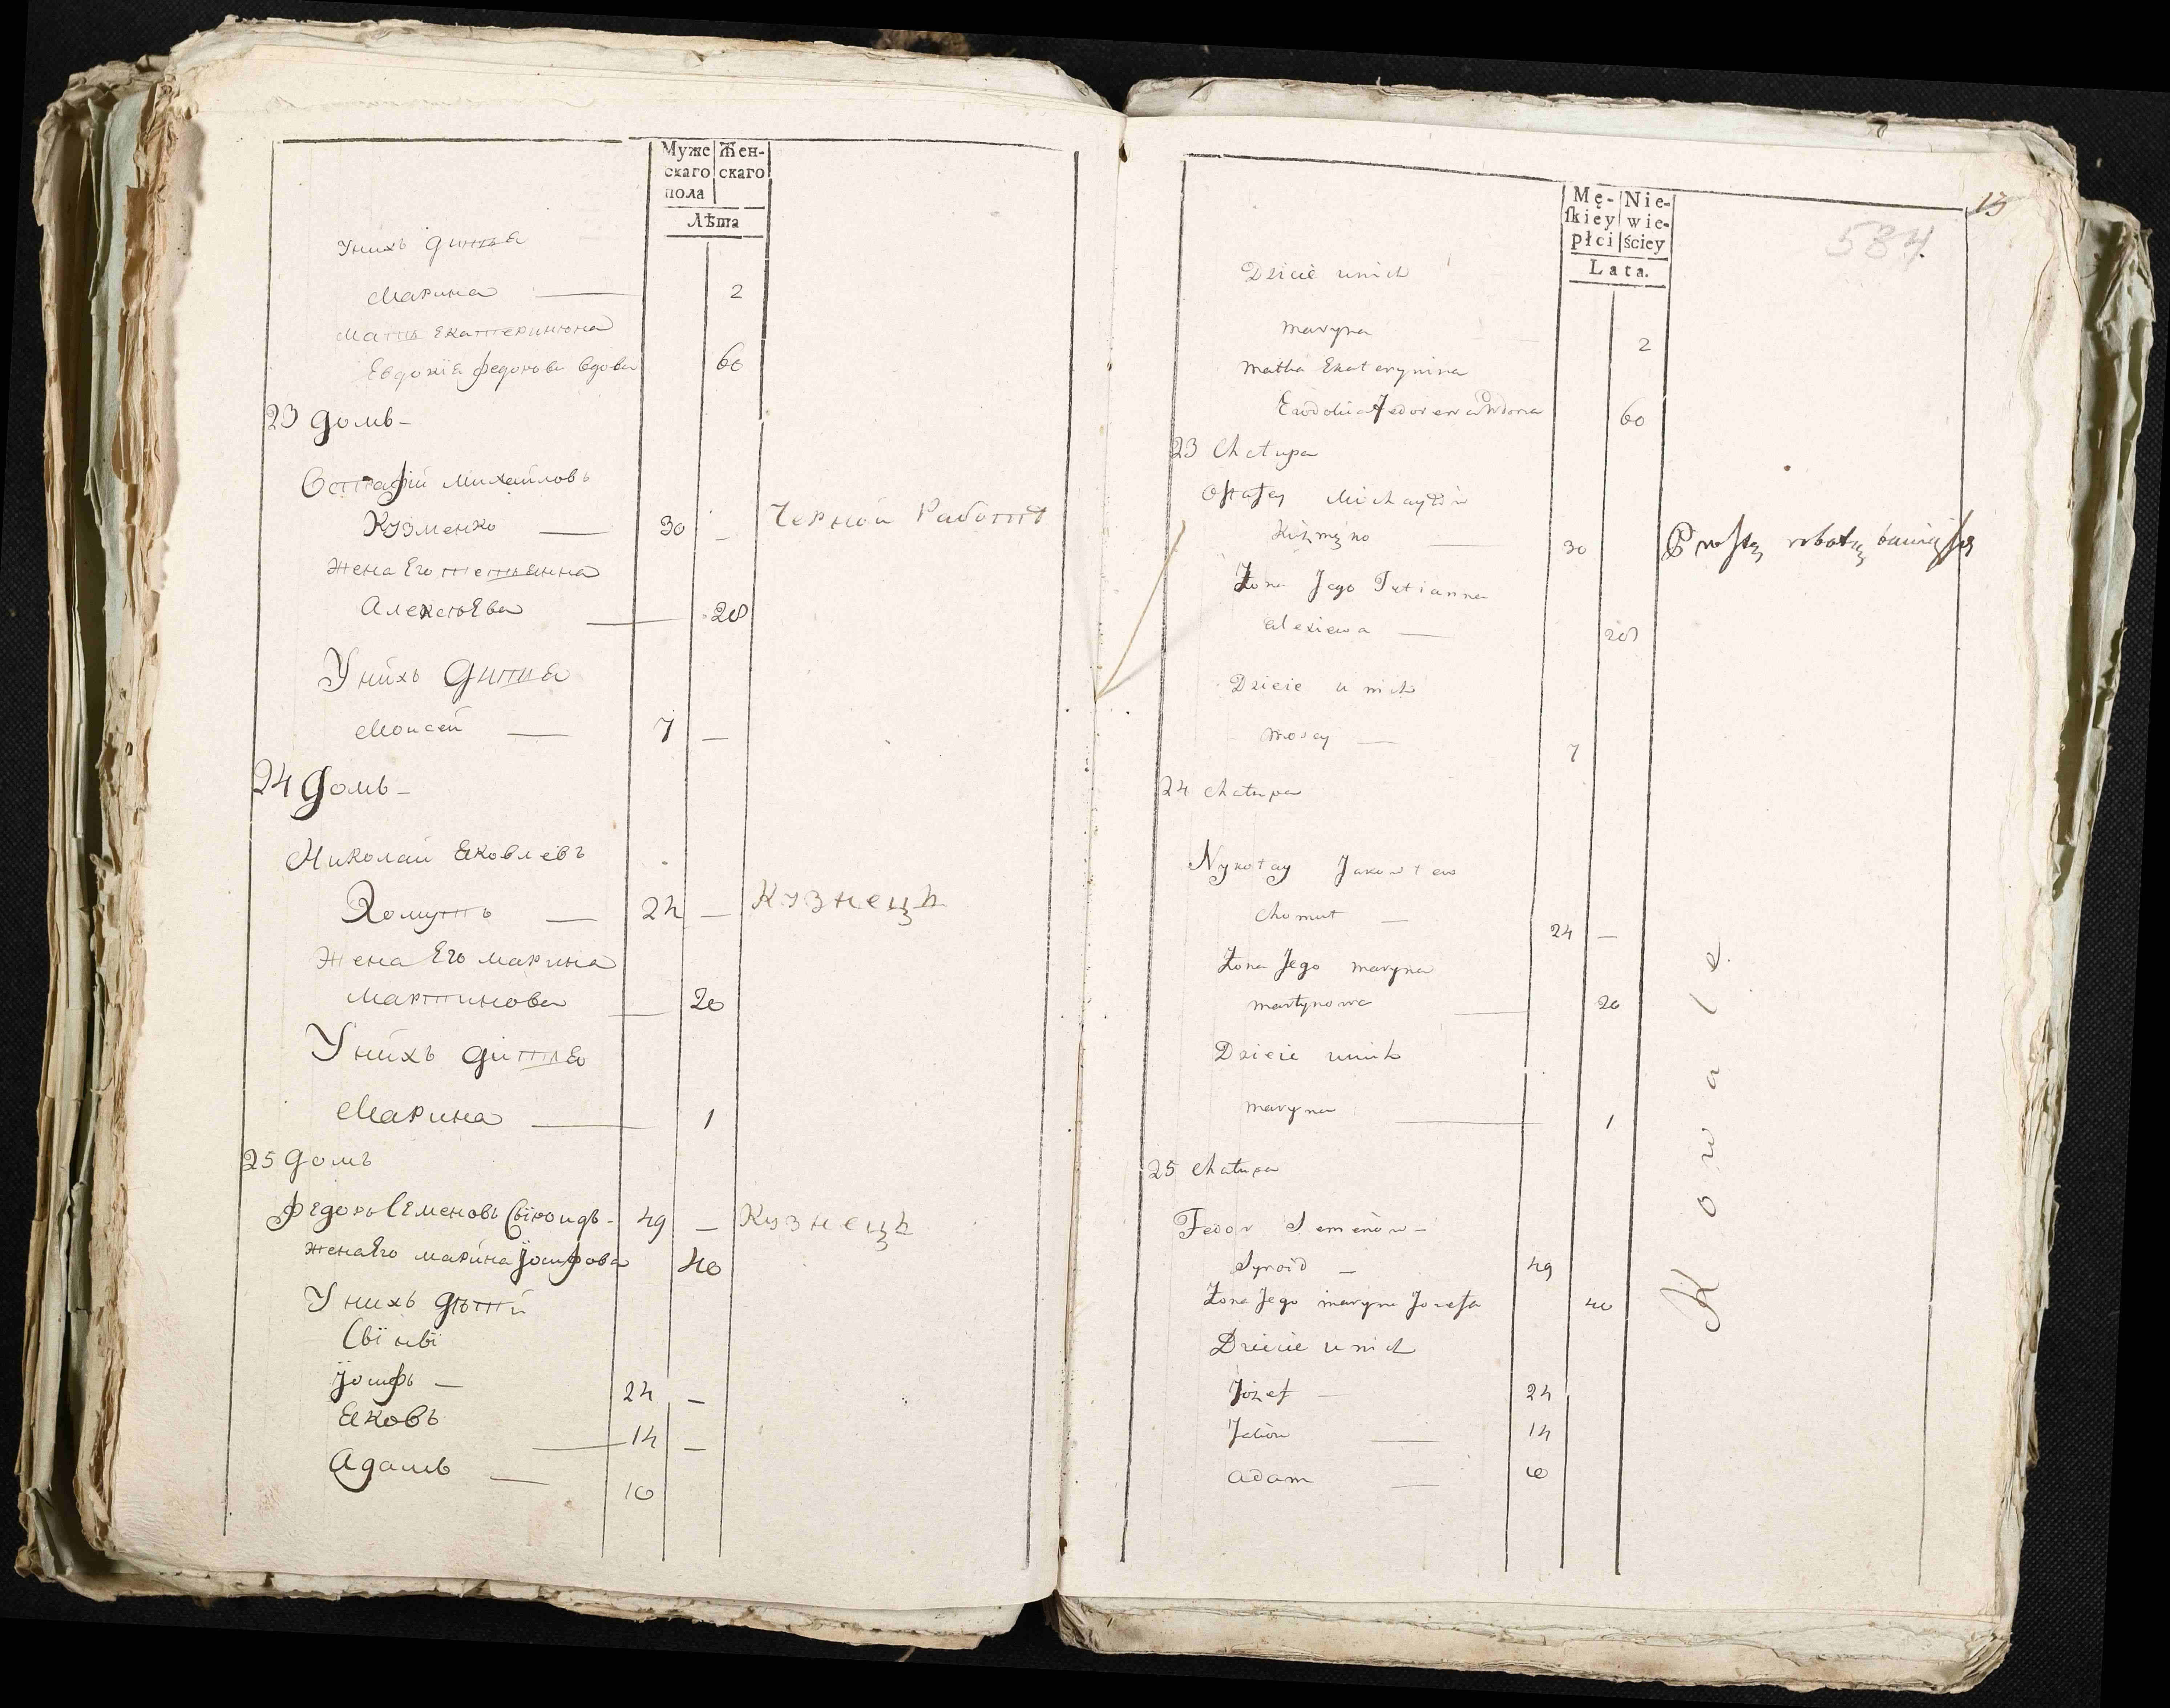 Муже Жен-
скаго скаго
пола
Лѣта
Унихъ дитя
Марина — 2
мать Екатеринина
Евдокія федорова вдова 60
23 домъ -
Остафій Михайловъ
Кузменко — 30 — Черной работы
жена Его тетьянна
Алексъева — 28
Унихъ дитя
Моисей — 7 —
24 домъ -
Николай Яковлевъ
Хомутъ — 24 — Кузнецъ
жена Его марина
мартинова — 20
Унихъ дитя
Марина — 1
25 домъ
федоръ Семеновъ Сыроидъ - 49 — Кузнецъ
жена Его марина Іосифова 40
Унихъ дѣти
Сыны
Іосифъ — 24 —
Яковъ — 14 —
Адамъ — 10
13
584
Mę- Nie-
ſkiey wie-
płci ściey
Lata.
Dzicie unich
maryna 2
matka Ekaterynina
Ewdokia Fedorowa Wdowa 60
23 Chałupa
Ostafey Michayłów
Kużmęko — 30 Prostą robotą
Żona Jego Tetianna
alexiewa — 28
Dzicie u nich
mosey — 7
24 chałupa
Nykołay Jakowlew
chomut — 24 —
Żona Jego maryna
martynowa — 20
Dzicie unich
maryna — 1
25 chałupa
Fedor Semenów -
Syroid — 49
Żona Jego maryna Jozefa 40
Dzicie u nich
Józef — 24
Jaków — 14
adam — 10
Kowale